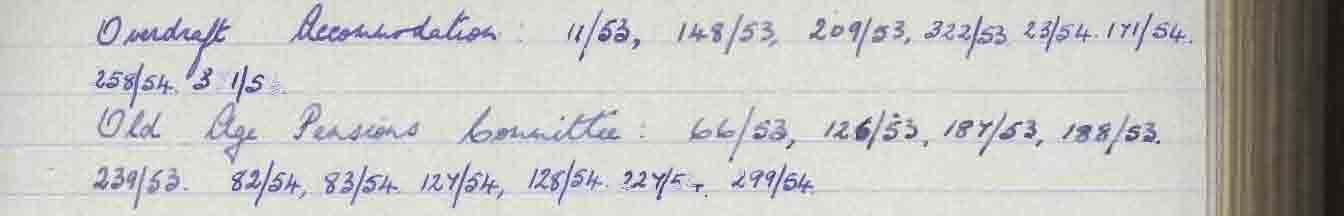 Overdraft Accommodation: 11/53, 148/53, 209/53, 322/53 23/54. 171/54.
258/54.
Old Age Pensions Committee: 66/53, 126/53, 187/53, 188/53.
239/53. 82/54, 83/54 127/54, 128/54. 299/54.